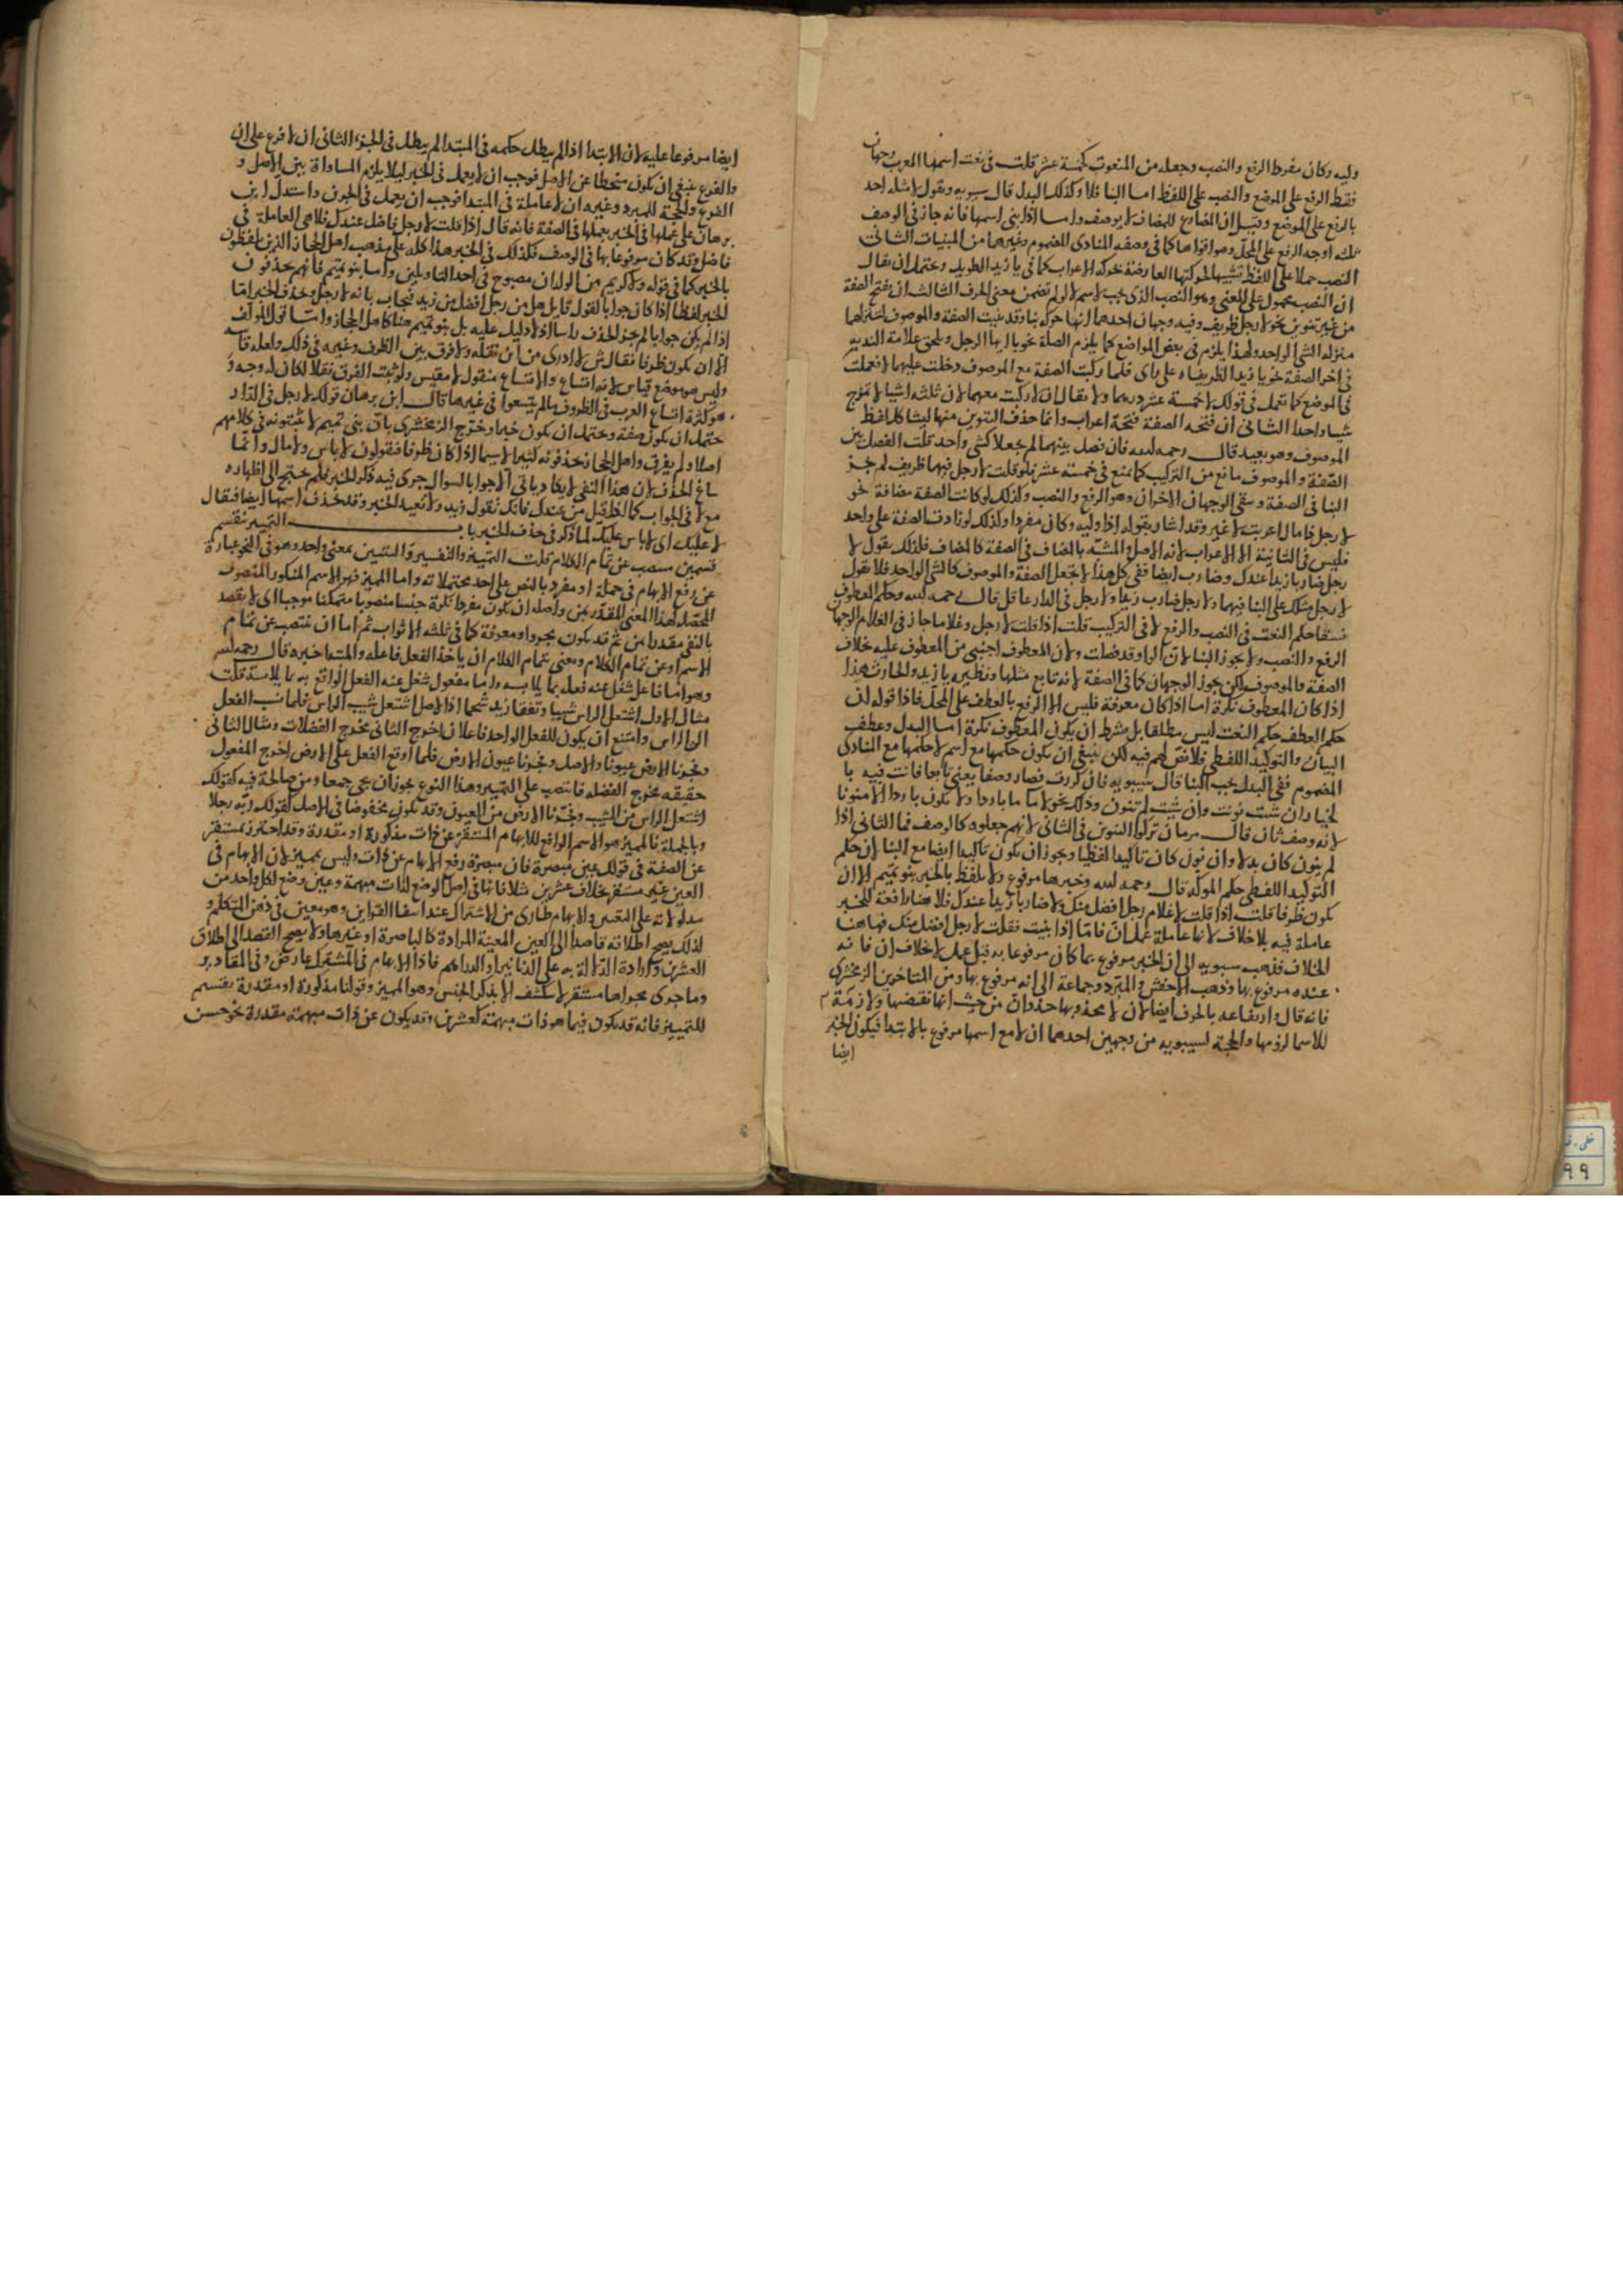 ٢٩
وليه وكان مفردا الرفع والنصب وجعله من المنعوت كخمسة عشر قلت في نعت اسمها المعرب وجهان
فقط الرفع على الموضع والنصب على اللفظ اما البنا فلا وكذلك البدل قال سيبويه وتقول لا مثله احد
بالرفع على الموضع وقيل ان المضارع للمضاف لا يوصف واما اذا بني اسمها فانه جاز في الوصف
ثلثه اوجه الرفع على المحل وهو اقواها كما في وصف المنادى المضموم وغيرها من المبنيات الثاني
النصب حملا على اللفظ تشبيها لحركتها العارضة بحركة الاعراب كما في يا زيد الطويل ويحتمل ان يقال
ان النصب محمول على المعنى وهو النصب الذي يجب لاسم لا لو لم تضمن معنى الحرف الثالث ان يفتح الصفة
من غير تنوين نحو لا رجل ظريف وفيه وجهان احدهما انها حركة بنا وقد بنيت الصفة والموصوف لتنزلهما
منزلة الشي الواحد ولهذا يلزم في بعض المواضع كما يلزم الصلة نحو يا ايها الرجل ولحق علامة الندبه
في اخر الصفة نحو يا زيد الظريفاه على راى فلما ركبت الصفة مع الموصوف دخلت عليهما لا فعملت
في الموضع كما تعمل في قولك لا خمسة عشر درهما ولا يقال ان لا ركبت معهما لان ثلثه اشيا لا تمزج
شيا واحدا الثاني ان فتحه الصفة فتحة اعراب وانما حذف التنوين منها ليشاكل لفظ
الموصوف وهو بعيد قال رحمه لله فان فصل بينهما لم يجعلا كشي واحد قلت الفصل بين
الصفة والموصوف مانع من التركيب كما يمنع في خمسة عشر فلو قلت لا رجل فيها ظريف لم يجز
البنا في الصفة وبقي الوجهان الاخران وهو الرفع والنصب وكذلك لو كانت الصفة مضافة نحو
لا رجل ذا مال اعربت لا غير وقد اشار بقوله اذا وليه وكان مفردا وكذلك لو زادت الصفة على واحد
فليس في الثانية الا الاعراب لانه الاصل والمشبه بالمضاف في الصفة كالمضاف فلذلك يقول لا
رجل ضاربا زيدا عندك وضارب ايضا ففي كل هذا لا تجعل الصفة والموصوف كالشي الواحد فلا تقول
لا رجل مثلك على البنا فيهما ولا رجل ضارب زيدا ولا رجل في الدار عاقل قال رحمه لله وحكم المعطوف
نسقا حكم النعت في النصب والرفع لا في التركيب قلت اذا قلت لا رجل وغلاما جاز في الغلام الوجهان
الرفع والنصب ولا يجوز البنا لان الواو قد فصلت ولان المعطوف اجنبي من المعطوف عليه بخلاف
الصفة والموصوف لكن يجوز الوجهان كما في الصفة لانه تابع مثلها ونظيره يا زيد والحارث هذا
اذا كان المعطوف نكرة اما اذا كان معرفة فليس الا الرفع بالعطف على المحل فاذا قوله ان
حكم العطف حكم النعت ليس مطلقا بل بشرط ان يكون المعطوف نكرة اما البدل وعطف
البيان والتوكيد اللفظي فلا نص لهم فيه لكن ينبغي ان يكون حكمها مع اسم لا حكمها مع المنادى
المضموم ففي البدل يجب البنا قال سيبويه فان كررت فصار وصفا يعني تابعا فانت فيه با
لخيار ان شيت نونت وان شيت لم تنون وذلك نحو لا ما ما باردا ولا يكون باردا الا منونا
لانه وصف ثان قال برهان تركوا التنوين في الثاني لانهم جعلوه كالوصف فما الثاني اذا
لم ينون كان بدلا وان نون كان تاكيدا لفظيا ويجوز ان يكون تاكيدا ايضا مع البنا لان حكم
التوكيد اللفظي حكم الموكد قال رحمه لله وخبرها مرفوع ولا يلفظ بالخبر بنو تميم الا ان
يكون ظرفا قلت اذا قلت لا غلام رجل افضل منك ولا ضاربا زيدا عندك فلا هنا رافعة للخبر
عاملة فيه بلا خلاف لانها عاملة عمل ان فاما اذا بنيت فقلت لا رجل افضل منك فهاهنا
الخلاف فذهب سيبويه الى ان الخبر مرفوع بما كان مرفوعا به قبل عمل لا خلاف ان فانه
عنده مرفوع بها وذهب الاخفش والمبرد وجماعة الى انه مرفوع بها ومن المتاخرين الزمخشري
فانه قال وارتفاعه بالحرف ايضا لان لا محذو بها حذو ان من حيث انها نقيضتها ولازمة
للاسما لزومها والحجة لسيبويه من وجهين احدهما ان لا مع اسمها مرفوع بالابتدا فيكون الخبر
ايضا
ايضا مرفوعا عليه لان الابتدا اذا لم يبطل حكمه في المبتدا لم يبطل في الخبر الثاني ان لا فرع على ان
والفرع ينبغي ان يكون منحطا عن الاصل فوجب ان لا يعمل في الخبر ليلا يلزم المساواة بين الاصل و
الفرع والحجة للمبرد وغيره ان لا عاملة في المبتدا فوجب ان يعمل في الخبر واستدل ابن
برهان على عملها في الخبر بعملها في الصفة فانه قال اذا قلت لا رجل فاضل عندك فلا هي العاملة في
فاضل وقد كان مرفوعا بها في الوصف فكذلك في الخبر هذا كله على مذهب اهل الحجاز الذين يلفظون
بالخبر كما في قوله ولا كريم من الولدان مصبوح في احد التاويلين واما بنو تميم فانهم يحذفون
الخبر لفظا اذا كان جوابا لقول قايل هل من رجل افضل من زيد فيجاب بانه لا رجل وحذف الخبر اما
اذا لم يكن جوابا لم يجز الحذف راسا اذ لا دليل عليه بل بنو تميم هنا كاهل الحجاز واما قول المولف
الا ان يكون ظرفا فقال ش لا ادرى من اين نقله ولا فرق بين الظرف وغيره في ذلك ولعله قاسه
وليس هو موضع قياس لانه اتساع والاتساع منقول لا مقيس ولو ثبت الفرق نقلا لكان له وجه و
هو كثرة اتساع العرب في الظروف ما لم يتسعوا في غيرها قال ابن برهان قولك لا رجل في الدار
يحتمل ان يكون صفة ويحتمل ان يكون خبرا وصرح الزمخشري بان بني تميم لا يثبتونه في كلامهم
اصلا ولم يفرق واهل الحجاز يحذفونه كثيرا لا سيما اذا كان ظرفا فيقولون لا باس ولا مال وانما
ساغ الحذف لان هذا النفي لا يكاد ياتي الا جوابا لسوال جرى فيه ذكر الخبر فلم يحتج الى اظهاره
مع لا في الجواب كما اذا قيل من عندك فانك تقول زيد ولا تعيد الخبر وقد تحذف اسمها ايضا فيقال
لا عليك اى لا باس عليك لما ذكر في حذف الخبر باب التمييز ينقسم
قسمين منتصب عن تمام الكلام قلت التمييز والتفسير والتبيين بمعنى واحد وهو في النحو عبارة
عن رفع الابهام في جملة او مفرد بالنص على احد محتملاته واما المميز فهو الاسم المنكور المنصوب
المحصل لهذا المعنى المقدر بمن واصله ان يكون مفردا نكرة جنسا منصوبا متمكنا موجبا اى لا يقصد
بالنفي مقدرا بمن ثم قد يكون مجرورا ومعرفة كما في ثلثه الاثواب ثم اما ان ينتصب عن تمام
الاسم او عن تمام الكلام ومعنى تمام الكلام ان ياخذ الفعل فاعله والمبتدا خبره قال رحمه لله
وهو اما فاعل شغل عنه فعله بما يلابسه واما مفعول شغل عنه الفعل الواقع به بما يلابسه قلت
مثال الاول اشتعل الراس شيبا وتفقا زيد شحما اذ الاصل اشتعل شيب الراس فلما نسب الفعل
الى الراس وامتنع ان يكون للفعل الواحد فاعلان اخرج الثاني مخرج الفضلات ومثال الثاني
وفجرنا الارض عيونا والاصل وفجرنا عيون الارض فلما اوقع الفعل على الارض اخرج المفعول
حقيقه مخرج الفضله فانتصب على التمييز وهذا النوع يجوز ان يجي جمعا ومن صالحة فيه كقولك
اشتعل الراس من الشيب وفجرنا الارض من العيون وقد يكون مخفوضا في الاصل كقولك ربه رجلا
وبالجملة فالمميز هو الاسم الرافع للابهام المستقر عن ذات مذكورة او مقدرة وقد احترز بمستقر
عن الصفة في قولك عين مبصرة فان مبصرة رفع الابهام عن ذات وليس بمميز لان الابهام في
العين غير مستقر بخلاف عشرين مثلا فانها في اصل الوضع لذات مبهمة وعين وضع لكل واحد من
مدلولاته على التعيين والابهام طارى من الاشتراك عند انتفا القراين وهو معين في ذهن المتكلم و
لذلك يصح اطلاقه قاصدا الى العين المعينة المرادة كالباصرة او غيرها ولا يصح القصد الى اطلاق
العشرين وارادة الدلالة به على الدنانير او الدراهم فاذا الابهام في المشترك عارض وفي المقادير
وما جرى مجراها مستقر لا ينكشف الا بذكر الجنس وهو المميز وقولنا مذكورة او مقدرة تقسيم
للتمييز فانه قد يكون فيما هو ذات مبهمة كعشرين وقد يكون عن ذات مبهمة مقدرة نحو حسن
٩٩